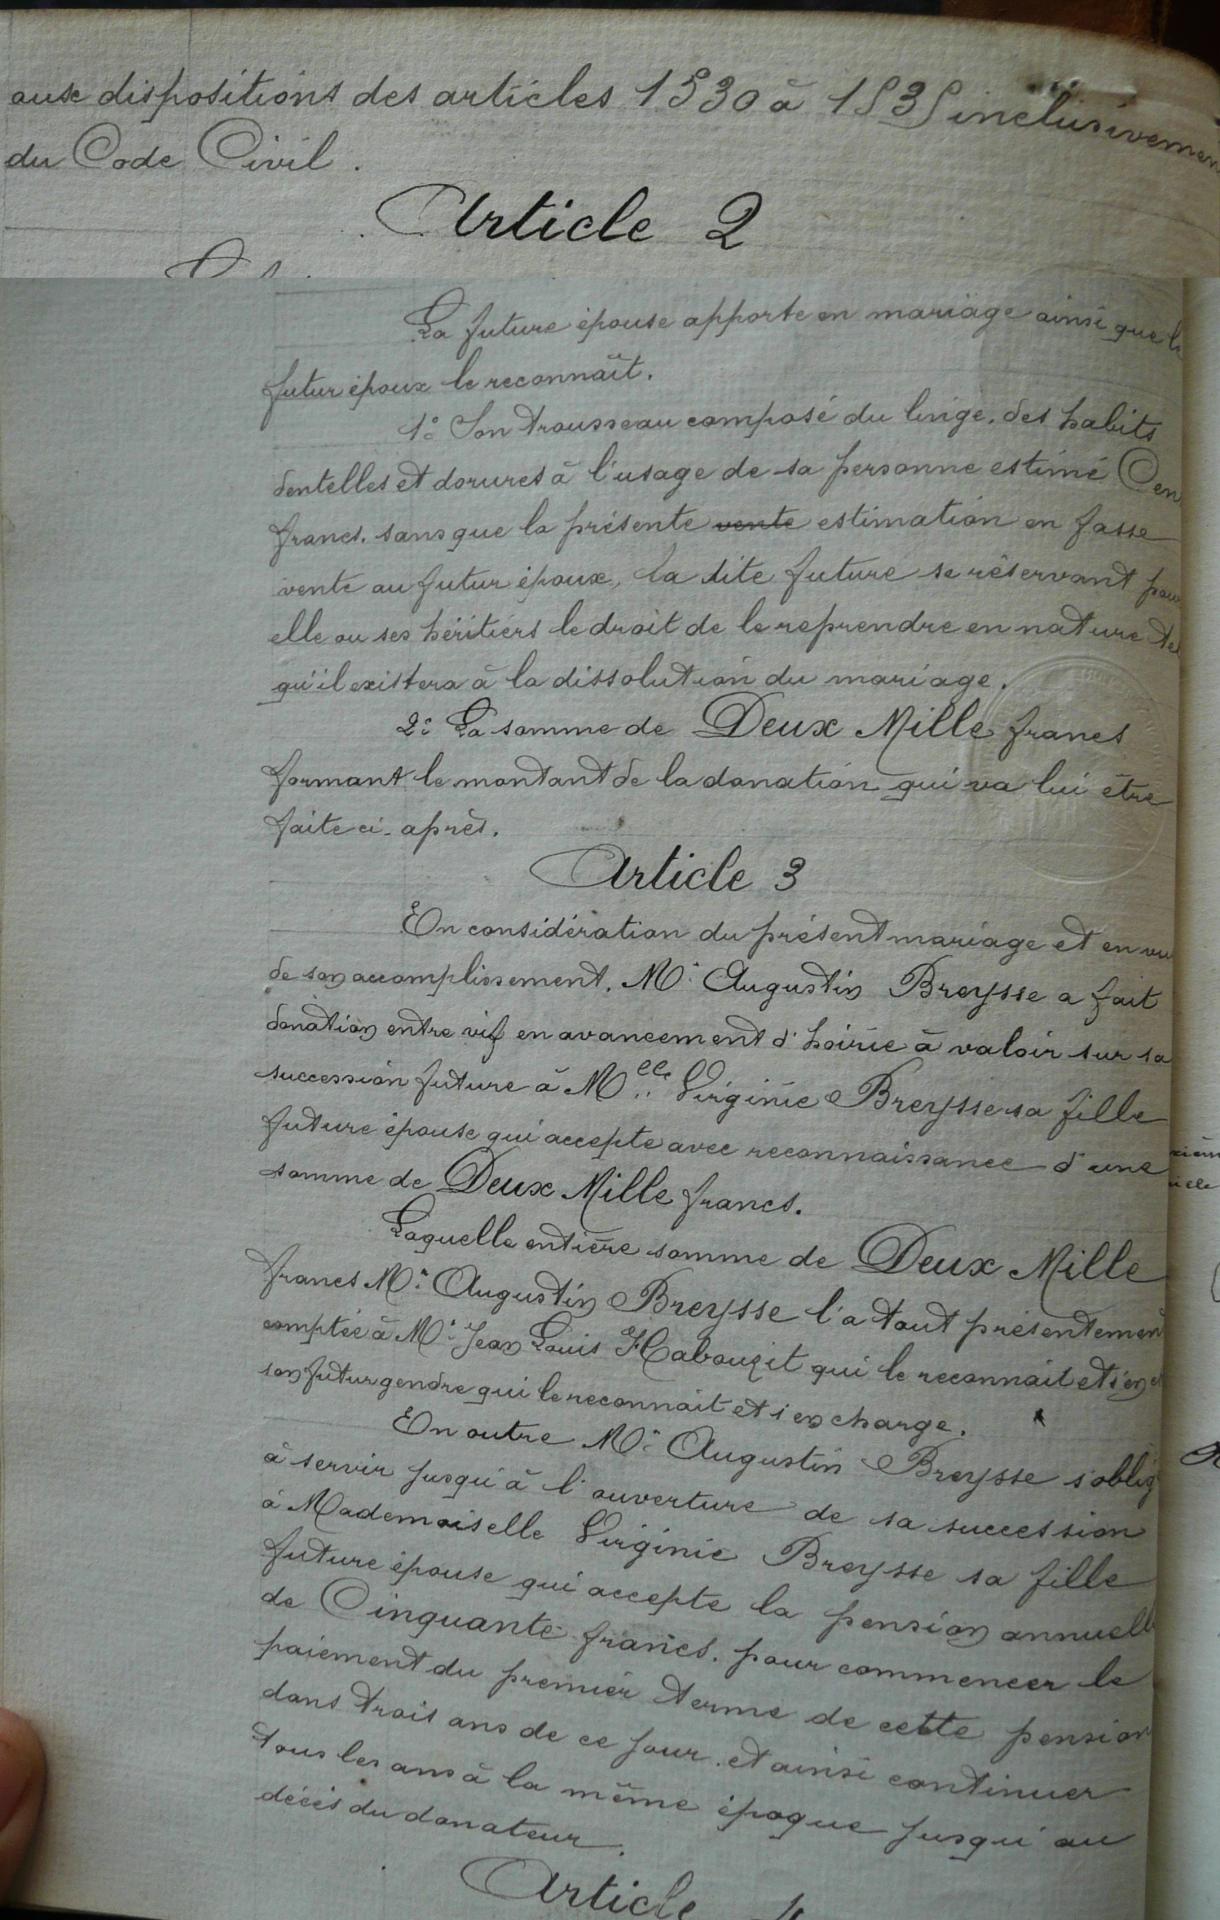 aux dispositions des articles 1530 à 1535 inclusivemen
du Code Civil.
Article 2
La future épouse apporte en mariage ainsi que le
futur époux le reconnaît.
1° Son trousseau composé du linge, des habits
dentelles et dorures à l'usage de sa personne estimé Cen
francs. sans que la présente vente estimation en fasse
vente au futur époux, la dite future se réservant pour
elle ou ses héritiers le droit de le reprendre en nature tel
qu'il existera à la dissolution du mariage.
2° La somme de Deux Mille francs
formant le montant de la donation qui va lui être
faite ci-après.
Article 3
En considération du présent mariage et en vu
de son accomplissement, Mr Augustin Breysse a fait
donation entre vif en avancement d'hoirie à valoir sur sa
succession future à Melle Virginie Breysse sa fille
future épouse qui accepte avec reconnaissance d'une
somme de Deux Mille francs.
Laquelle entière somme de Deux Mille
francs Mr Augustin Breysse l'a tout présentement
comptée à Mr Jean Louis Habouzit qui le reconnait et s'en
son futur gendre qui le reconnait et s'en charge.
En outre Mr Augustin Breysse s'oblig
à servir jusqu'à l'ouverture de sa succession
à Mademoiselle Virginie Breysse sa fille
future épouse qui accepte la pension annuelle
de Cinquante francs. pour commencer le
paiement du premier terme de cette pension
dans trois ans de ce jour. et ainsi continuer
tous les ans à la même époque jusqu'au
décès du donateur.
Article 4